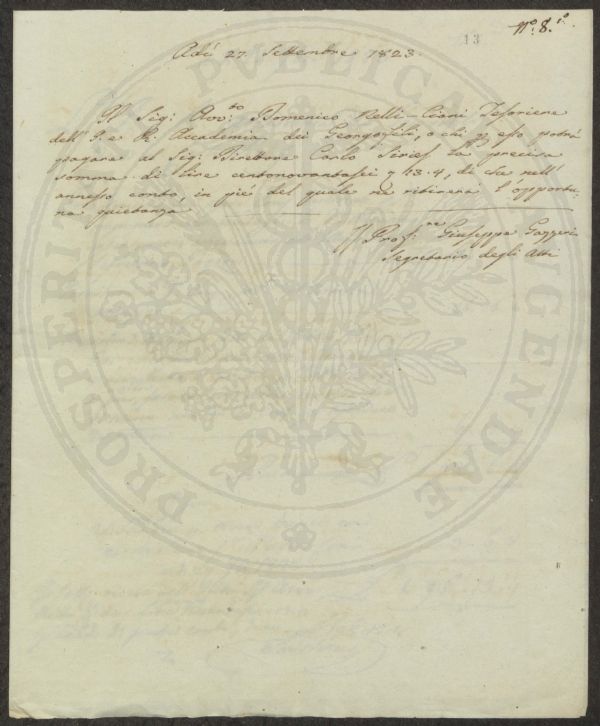 13
N.° 8.°
Adì 27. Settembre 1823.
Il Sig: Avv:to Domenico Nelli-Ciani Tesoriere
dell'I. e R. Accademia dei Georgofili, o chi p esso potrà
pagare al Sig: Direttore Carlo Siries la precisa
somma di Lire centonovantasei e 13.4, di che nell'
annesso conto, in piè del quale ne ritirerà l'opportu-
na quietanza
Il Prof:re Giuseppe Gazzeri
Segretario degli Atti
PROSPERITATI PUBLICAE AUGENDAE